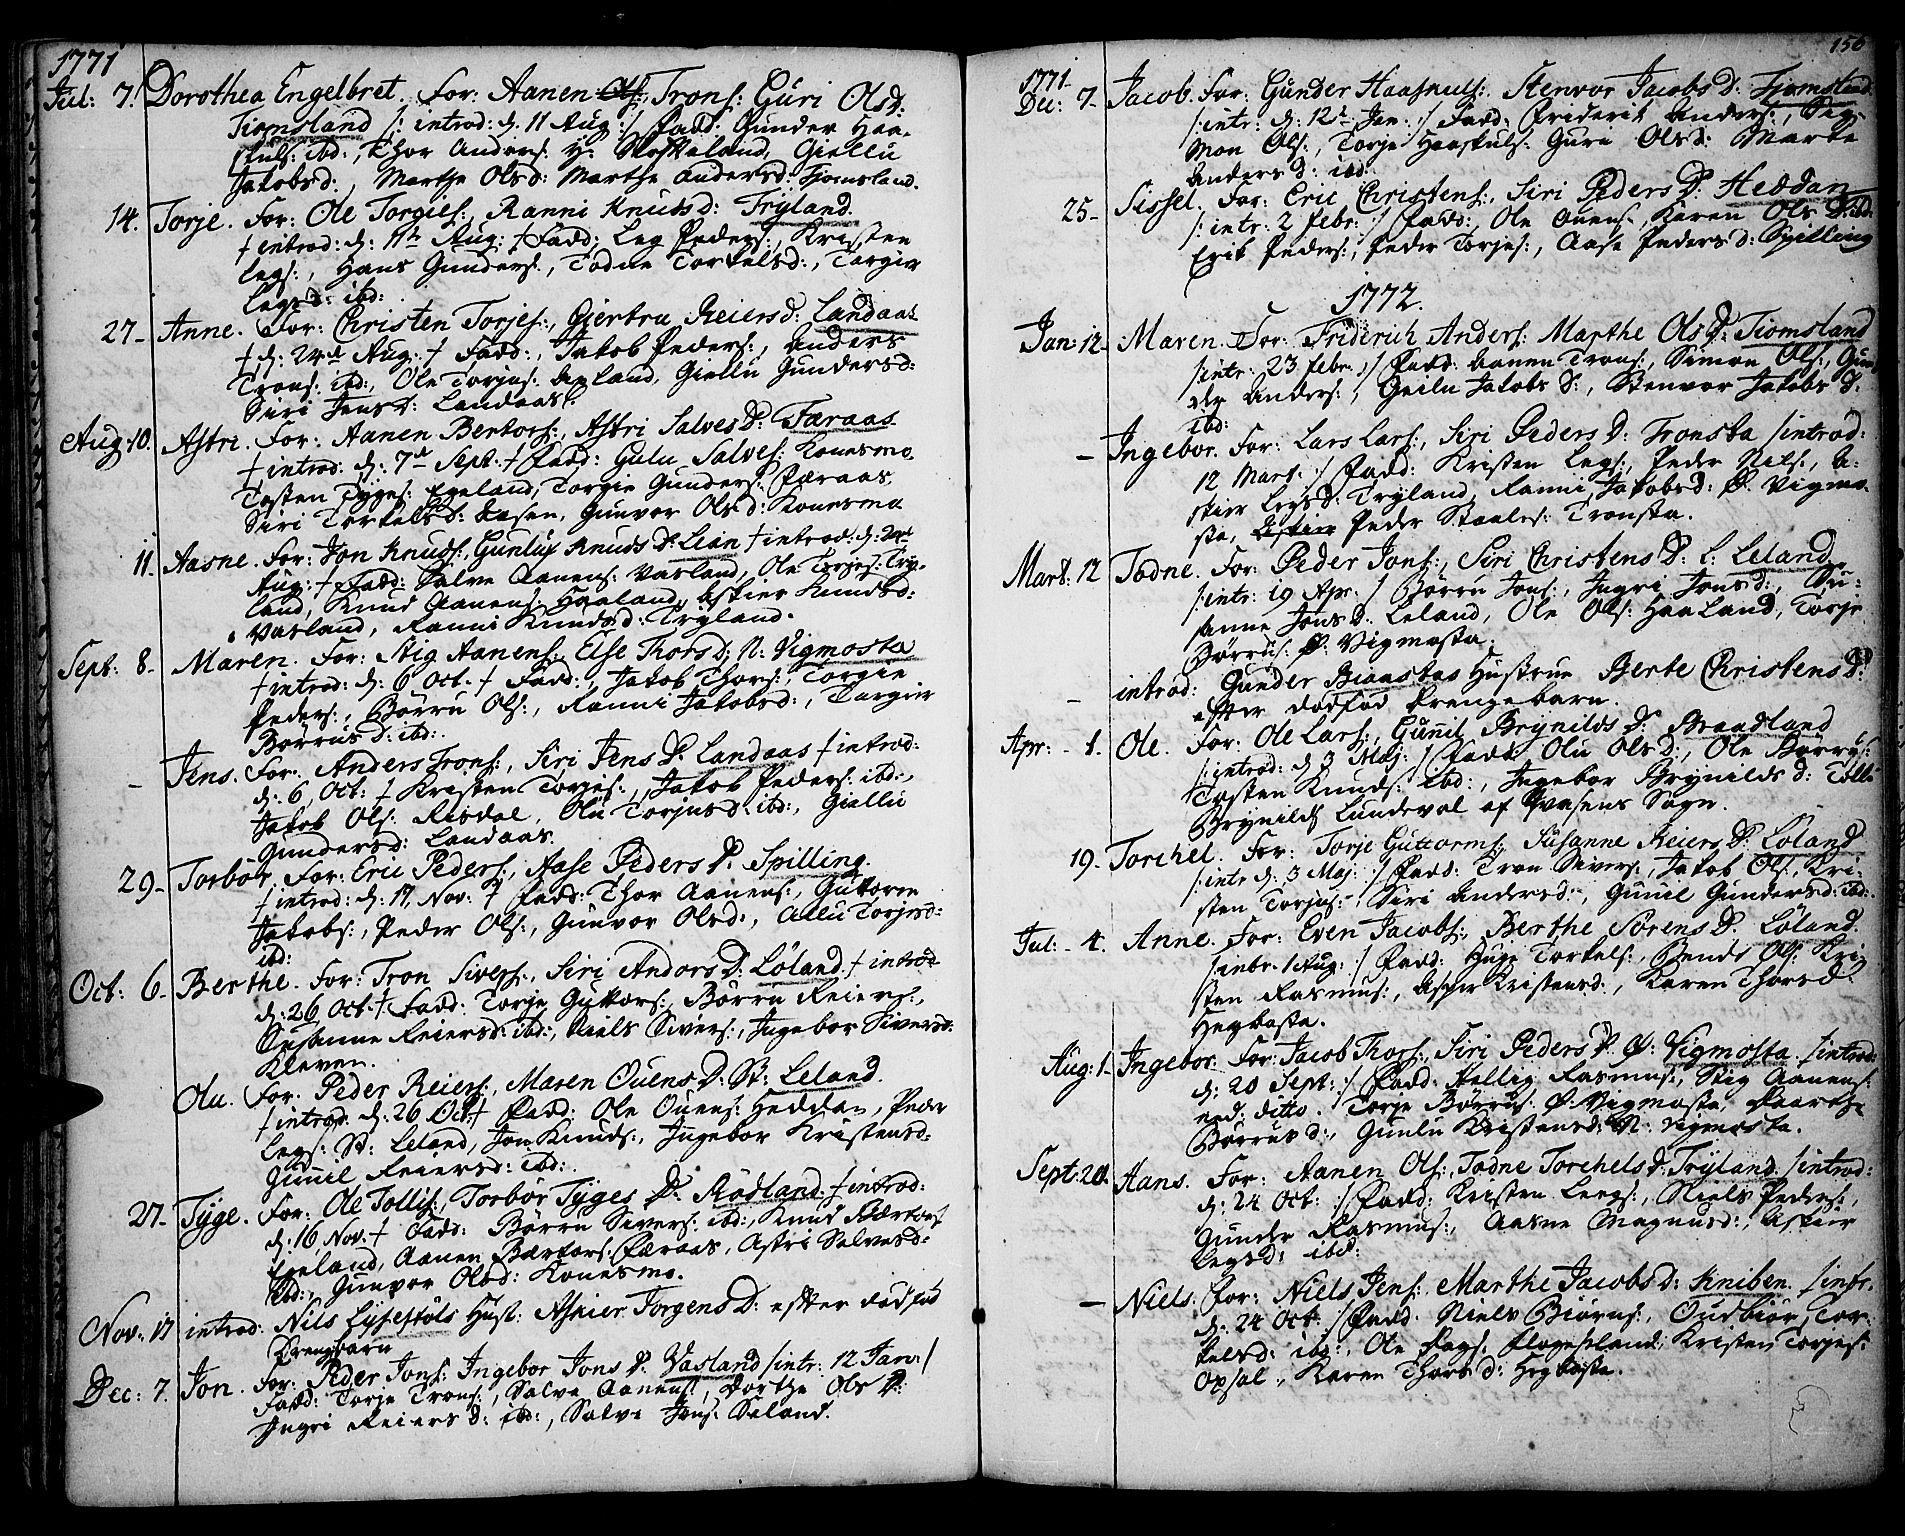 1771
Jul: 7. Dorothea Engelbret. For: Aanen Trons: Guri Olsd:
Tiomsland /: introd: d: 11 Aug :/ Fadd: Gunder Haa-
skuls: ibd:, Thor Anders: Giellu
Jakobsd:, Marthe Olsd: Marthe Andersd: Tiomsland.
14. Torje. For: Ole Torgies:, Ranni Knudsd: Tryland.
† introd: d: 11te Aug: † Fadd: Leg Peders:, Kristen
Legs:, Hans Gunders:, Todne Torkelsd:, Torgier
Legsd: ibd:
27- Anne. For: Christen Torjes:, Giertru Reiersd: Landaas
† d: 24de Aug: † Fadd:, Jakob Peders:, Anders
Trons: ibd:, Ole Torjus: Giellu Gundersd:
Siri Jens D: Landaas.
Aug: 10. Astri. For: Aanen Bertors:, Astri Salves D: Færaas
† introd: d: 7de Sept: † Fadd: Gulu Salves: Konesmo
Tosten Tyges: Egeland, Torgie Gunders: Færaas,
Siri Torkelsd: Aasen, Gunvor Olsd: Konesmo
11. Aasne. For: Jon Knuds:, Gunlug Knuds D: Lian † introd: d:
Aug: † Fadd: Salve Aanens: Vasland, Ole Torjes: Try-
land, Knud Aanens: Haaland, Askier Knudsd:
Vasland, Ranni Knudsd: Tryland.
Sept: 8. Maren. For: Stig Aanens:, Else Thorsd: N: Vigmosta
† introd: d: 6 Oct: † Fadd:, Jakob Thors:, Torgie
Peders:, Børru Ols:, Ranni Jakobsd:, Torgier
Børrus D: ibd:
- Jens. For: Anders Trons:, Siri Jens D: Landaas † introd:
d: 6 Oct: † Kristen Torjes:, Jakob Peders: ibd:,
Jakob Ols: Risdal, Olu Torjusd: ibd:, Giellu
Gundersd: Landaas.
29- Torbør. For: Eric Peders:, Aase Peders D: Spilling.
† introd: d: 17 Nov: † Fadd: Thor Aanens:, Guttorm
Jakobs:, Peder Ols:, Gunvor Olsd:, Allu Torjesd:
ibd:
Oct: 6. Berthe. For: Tron Sivers:, Siri Andors D: Løland † introd
d: 26 Oct: † Fadd: Torje Guttors:, Børru Reiers:,
Susanne Reiersd: ibd:, Niels Sivers:, Ingebor Siversd:
Kleven.
Olu. For: Peder Reiers:, Maren Ouens D: St: Leland.
† introd: d: 26 Oct: † Fadd: Ole Ouens: Heddan, Peder
Legs: St: Leland, Jon Knuds:, Ingebor Kristensd:
Guniil Reiersd: ibd:
27- Tyge. For: Ole Tollis:, Torbør Tyges D: Rødland † introd:
d: 16 Nov: † Fadd: Børru Sivers: ibd:, Knud Bertors
Egeland, Aanen Bertors: Færaas, Astri Salvesd:
ibd:, Gunvor Olsd: Konesmo.
Nov: 17 introd: Nils Lysestøls Hust: Askier Jorgens D: efter dødfød
Drengebarn
Dec: 7. Jon. For: Peder Jons: Ingebor Jons D: Vasland /intr: 12 Jan:/
Fadd: Torje Trons:, Salve Aanens:, Dorthe Ols D:
Ingri Reiersd: ibd:, Salve Jons: Seland.
156
1771-
Dec: 7- Jacob. For: Gunder Haaskuls: Stenvor Jacobs D: Tiomsland
/:intr: d: 12te Jan: :/ Fadd: Friderik Anders:, Si-
mon Ols:, Torje Haaskuls: Guri Olsd: Marte
Andersd: ibd:
25- Sissel. For: Eric Christens:, Siri Peders D: Heddan
/:intr: 2 Febr: :/ Fadd: Ole Ouens:, Karen Ols D: ibd:
Erik Peders:, Peder Torjes:, Aase Pedersd: Spilling
1772.
Jan: 12- Maren. For: Friderich Anders: Marthe Ols D: Tiomsland
/:intr: 23 Febr: :/ Fadd: Aanen Trons:, Simon Ols:, Gun
der Anders:, Geilu Jakobs D:, Stenvor Jakobs D:
ibd:
- Ingebor. For: Lars Lars:, Siri Peders D: Tronsta /introd:
12 Mart: :/ Fadd: Kristen Legs:, Peder Nils:, A-
skier Legsd: Tryland, Ranni Jakobsd: Ø: Vigmo-
sta, Peder Staales: Tronsta.
Mart: 12 Todne. For: Peder Jons:, Siri Christens D: L: Leland.
/:intr: 19 Apr: :/ Børru Jons:, Ingri Jonsd:, Su-
sanne Jonsd: Leland, Ole Ols: Haaland, Torje
Børrus: Ø: Vigmosta.
- introd: Gunder Biaastas Hustrue Berte Christens D:
efter dødfød Drengebarn.
Apr: - 1. Ole. For: Ole Lars:, Guniil Brynilds D: Braadland
/:introd: d: 3 Maj: :/ Fadd: Olu Olsd:, Ole Børrus:
Tosten Knuds: ibd:, Ingebor Brynildsd: Tolle
Brynilds: Lundevol af Qvasens Sogn.
19- Torchel. For: Torje Guttorms:, Susanne Reiers D: Løland
/:intr: d: 3 Maj: :/ Fadd: Tron Sivers:, Jakob Ols:, Kri-
sten Torjus: Siri Andersd:, Guniil Gundersd: ibd:
Jul: - 4. Anne. For: Even Jacobs:, Berthe Sørens D: Løland.
/:intr: 1 Aug: :/ Fadd: Torkels:, Bendt Ols: Kri-
sten Rasmus:, Kristensd:, Karen Thorsd:
Hegbosta.
Aug: 1- Ingebor. For: Jacob Thors:, Siri Peders D: Ø: Vigmosta. /introd:
d: 20 Sept: :/ Fadd: Rasmus:, Stig Aanens:
ditto. Torje Børrus: Ø: Vigmosta,
Børrusd:, Gunlu Kristensd: N: Vigmosta.
Sept: 20. Hans. For: Aanen Ols:, Todne Torchels D: Tryland. /introd:
d: 24 Oct: :/ Fadd: Kristen Legs:, Niels Peders:,
Gunder Rasmus:, Aasne Magnusd:, Askier
Legsd: ibd:
- Niels. For: Niels Jens: Marthe Jacobs D: Kniben. /intr.
d: 24 Oct: :/ Fadd: Niels Biørns:, Oudbiør Tor-
kelsd: ibd:, Ole Kristen Torjes:
Opsal, Karen Thorsd: Hegbosta.